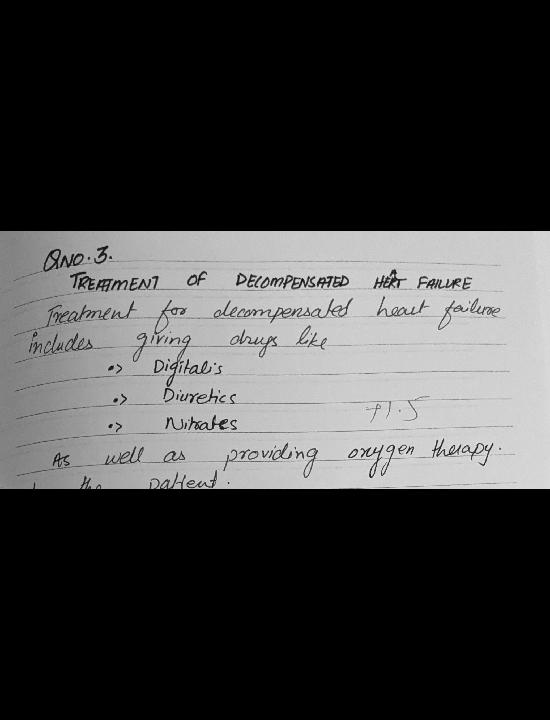 QNO.3.
TREATMENT OF DECOMPENSATED HEART FAILURE
Treatment for decompensated heart failure
includes giving drugs like
•> Digitalis
•> Diuretics
•> Nitrates
+1.5
As well as providing oxygen therapy.
the patient.